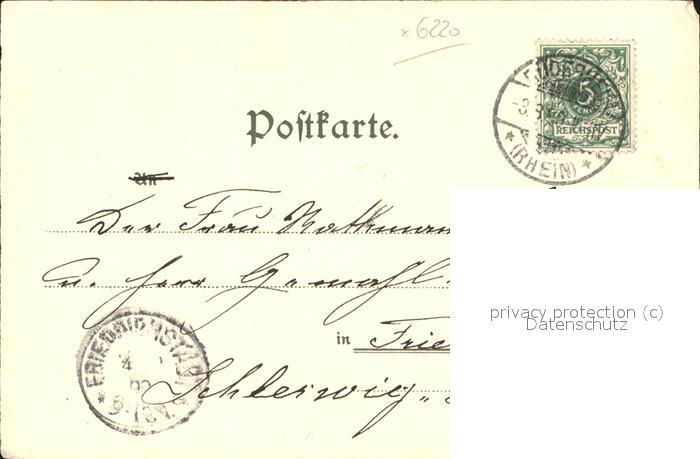 × 6220
5
REICHSPOST
(RHEIN)
Postkarte.
An
Der Frau
u. Herr Gemahl
privacy protection (c)
Datenschutz
in Frie
FRIEDRICHSTADT
4
Schleswig